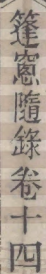 篷窗隨錄卷十四